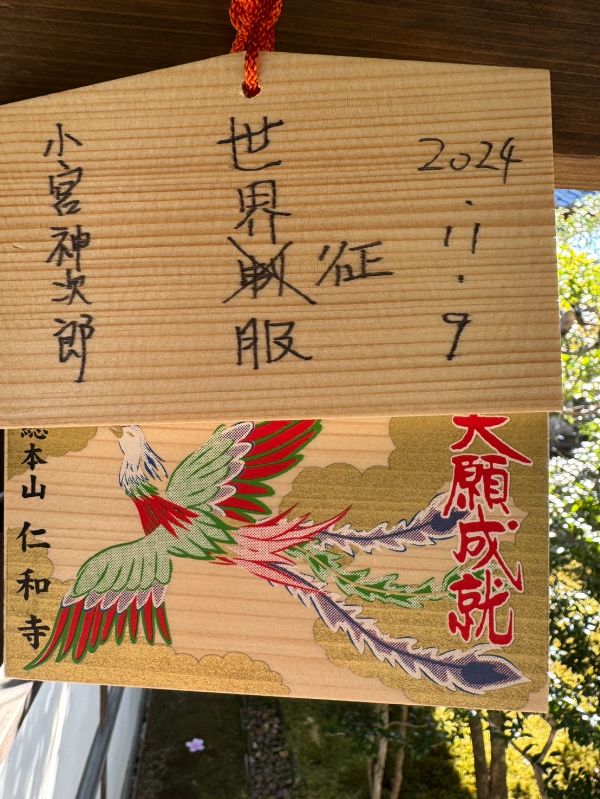 2024.11.9
世界征服
小宮神次郎
大願成就
総本山 仁和寺